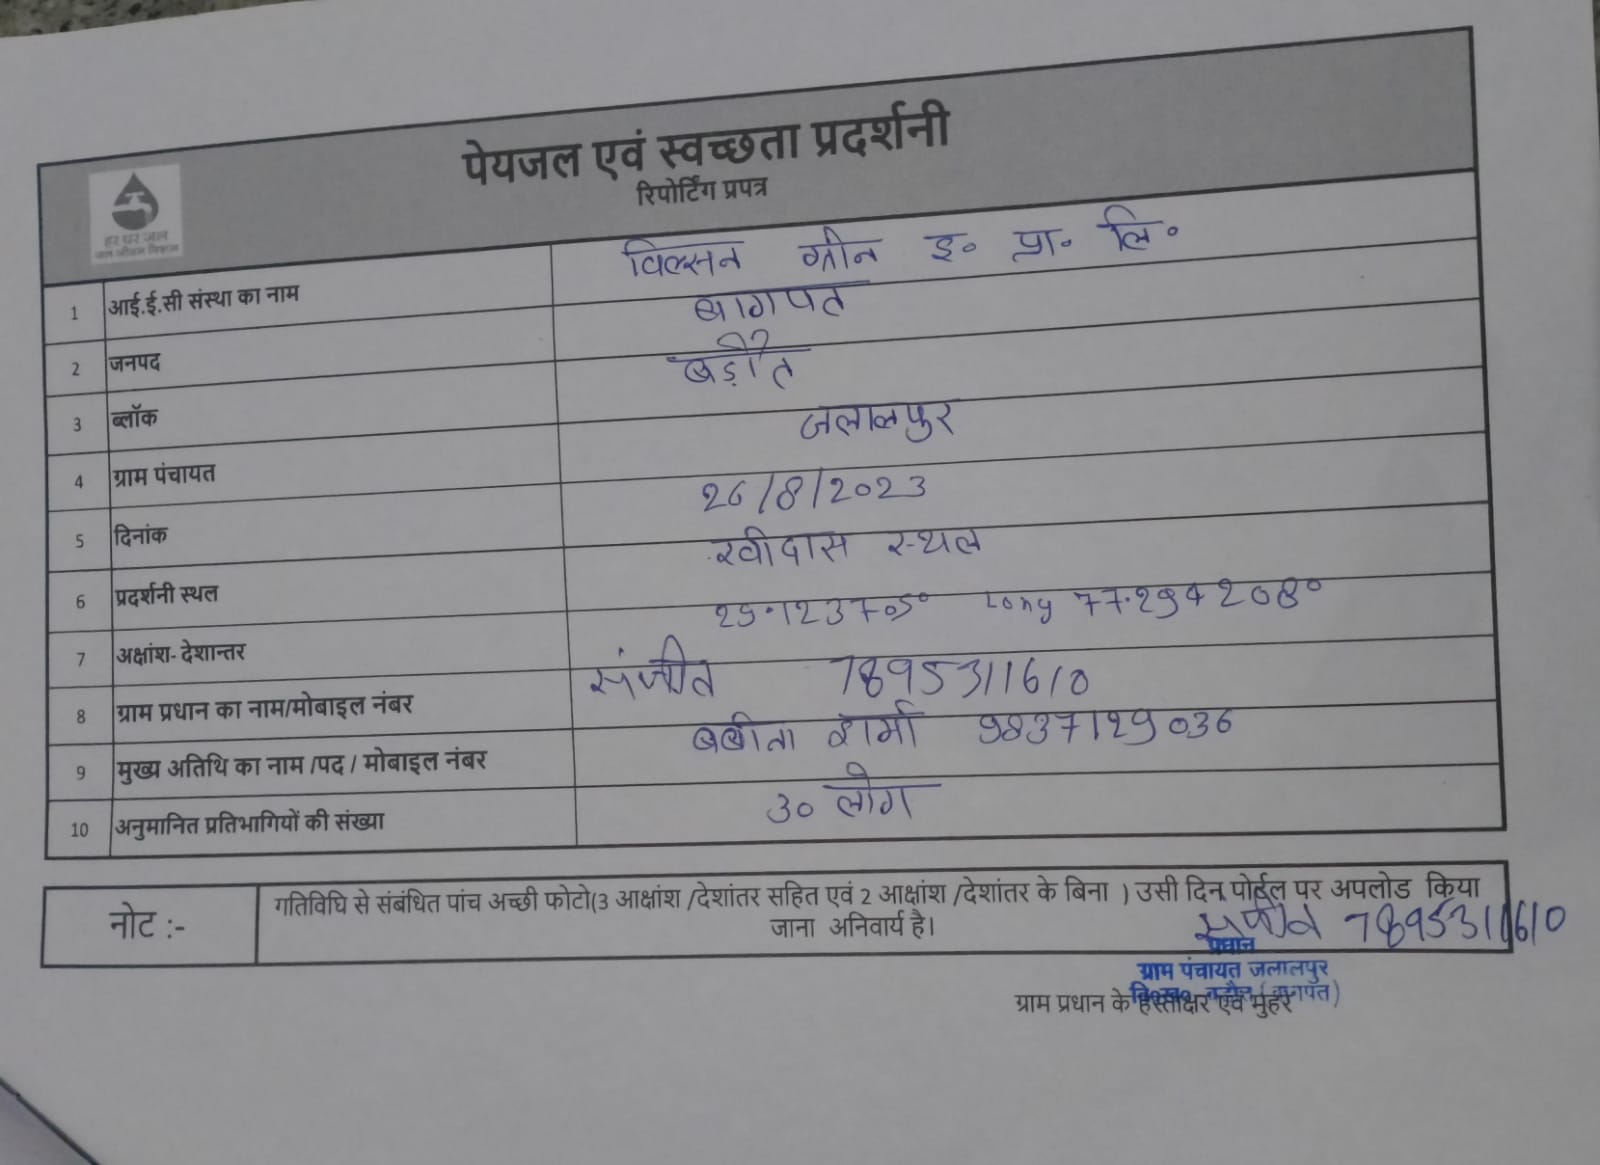 पेयजल एवं स्वच्छता प्रदर्शनी
रिपोर्टिंग प्रपत्र
हर घर जल
जल जीवन मिशन
1 आई.ई.सी संस्था का नाम विल्सन ग्रीन इ० प्रा० लि०
2 जनपद बागपत
3 ब्लॉक बड़ौत
4 ग्राम पंचायत जलालपुर
5 दिनांक 26/8/2023
6 प्रदर्शनी स्थल रवीदास स्थल
7 अक्षांश- देशान्तर 29.123705° Long 77.2942080°
8 ग्राम प्रधान का नाम/मोबाइल नंबर संजीत 7895311610
9 मुख्य अतिथि का नाम /पद / मोबाइल नंबर बबीता शर्मा 9837129036
10 अनुमानित प्रतिभागियों की संख्या 30 लोग
नोट :- गतिविधि से संबंधित पांच अच्छी फोटो(3 आक्षांश /देशांतर सहित एवं 2 आक्षांश /देशांतर के बिना ) उसी दिन पोर्टल पर अपलोड किया
जाना अनिवार्य है।
7895311610
प्रधान
ग्राम पंचायत जलालपुर
वि०ख० बड़ौत (बागपत)
ग्राम प्रधान के हस्ताक्षर एवं मुहर